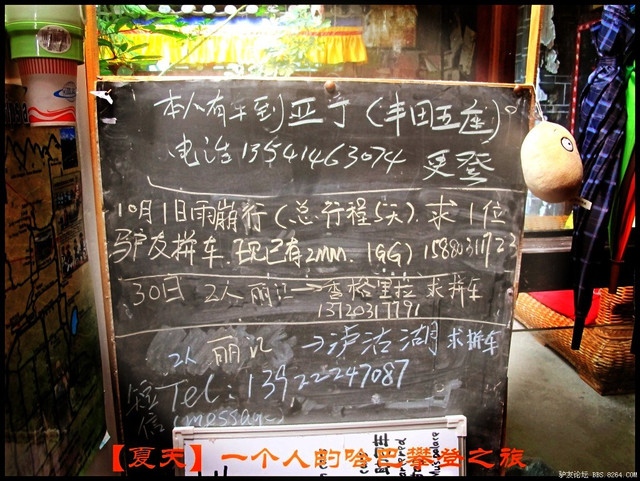 本人有车到亚丁(丰田五座)。
电话13541463074 夏登
10月1日雨崩行(总行程5天).求1位
驴友拼车.现已有2MM.1GG)15880311723
30日 2人 丽江→香格里拉 求拼车
13720317791
2人 丽江→泸沽湖 求拼车
短信 Tel:13922247087
(message)
【夏天】一个人的哈巴攀登之旅
驴友论坛 BBS.8264.COM